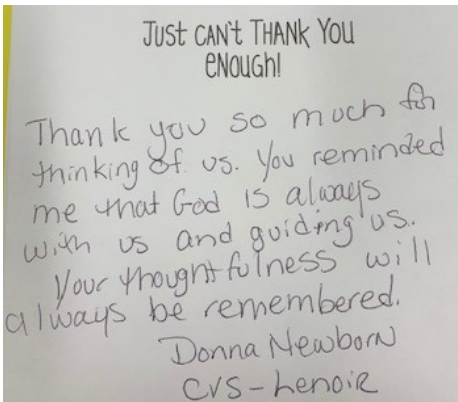 JUST CAN'T THANK YOU
ENOUGH!
Thank you so much for
thinking of us. You reminded
me that God is always
with us and guiding us.
Your thoughtfulness will
always be remembered.
Donna Newborn
CVS-Lenoir